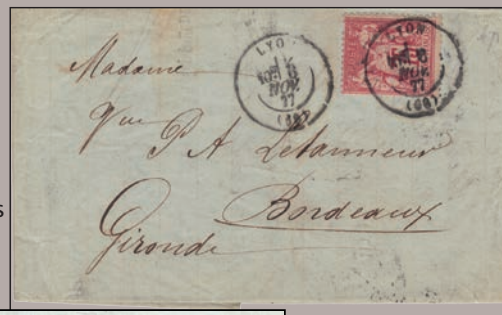 LYON
NOV
77
(68)
LYON
NOV
77
(68)
Madame
Vve P A Letanneur
Bordeaux
Gironde
s